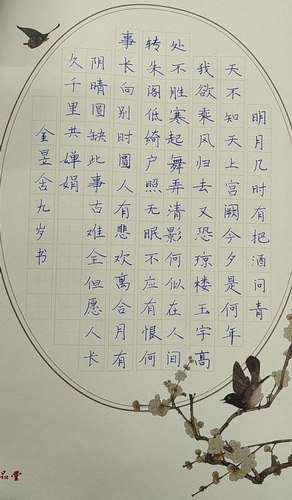 明月几时有把酒问青
天不知天上宫阙今夕是何年
我欲乘风归去又恐琼楼玉宇高
处不胜寒起舞弄清影何似在人间
转朱阁低绮户照无眠不应有恨何
事长向别时圆人有悲欢离合月有
阴晴圆缺此事古难全但愿人长
久千里共婵娟
金昱舍九岁书
品堂